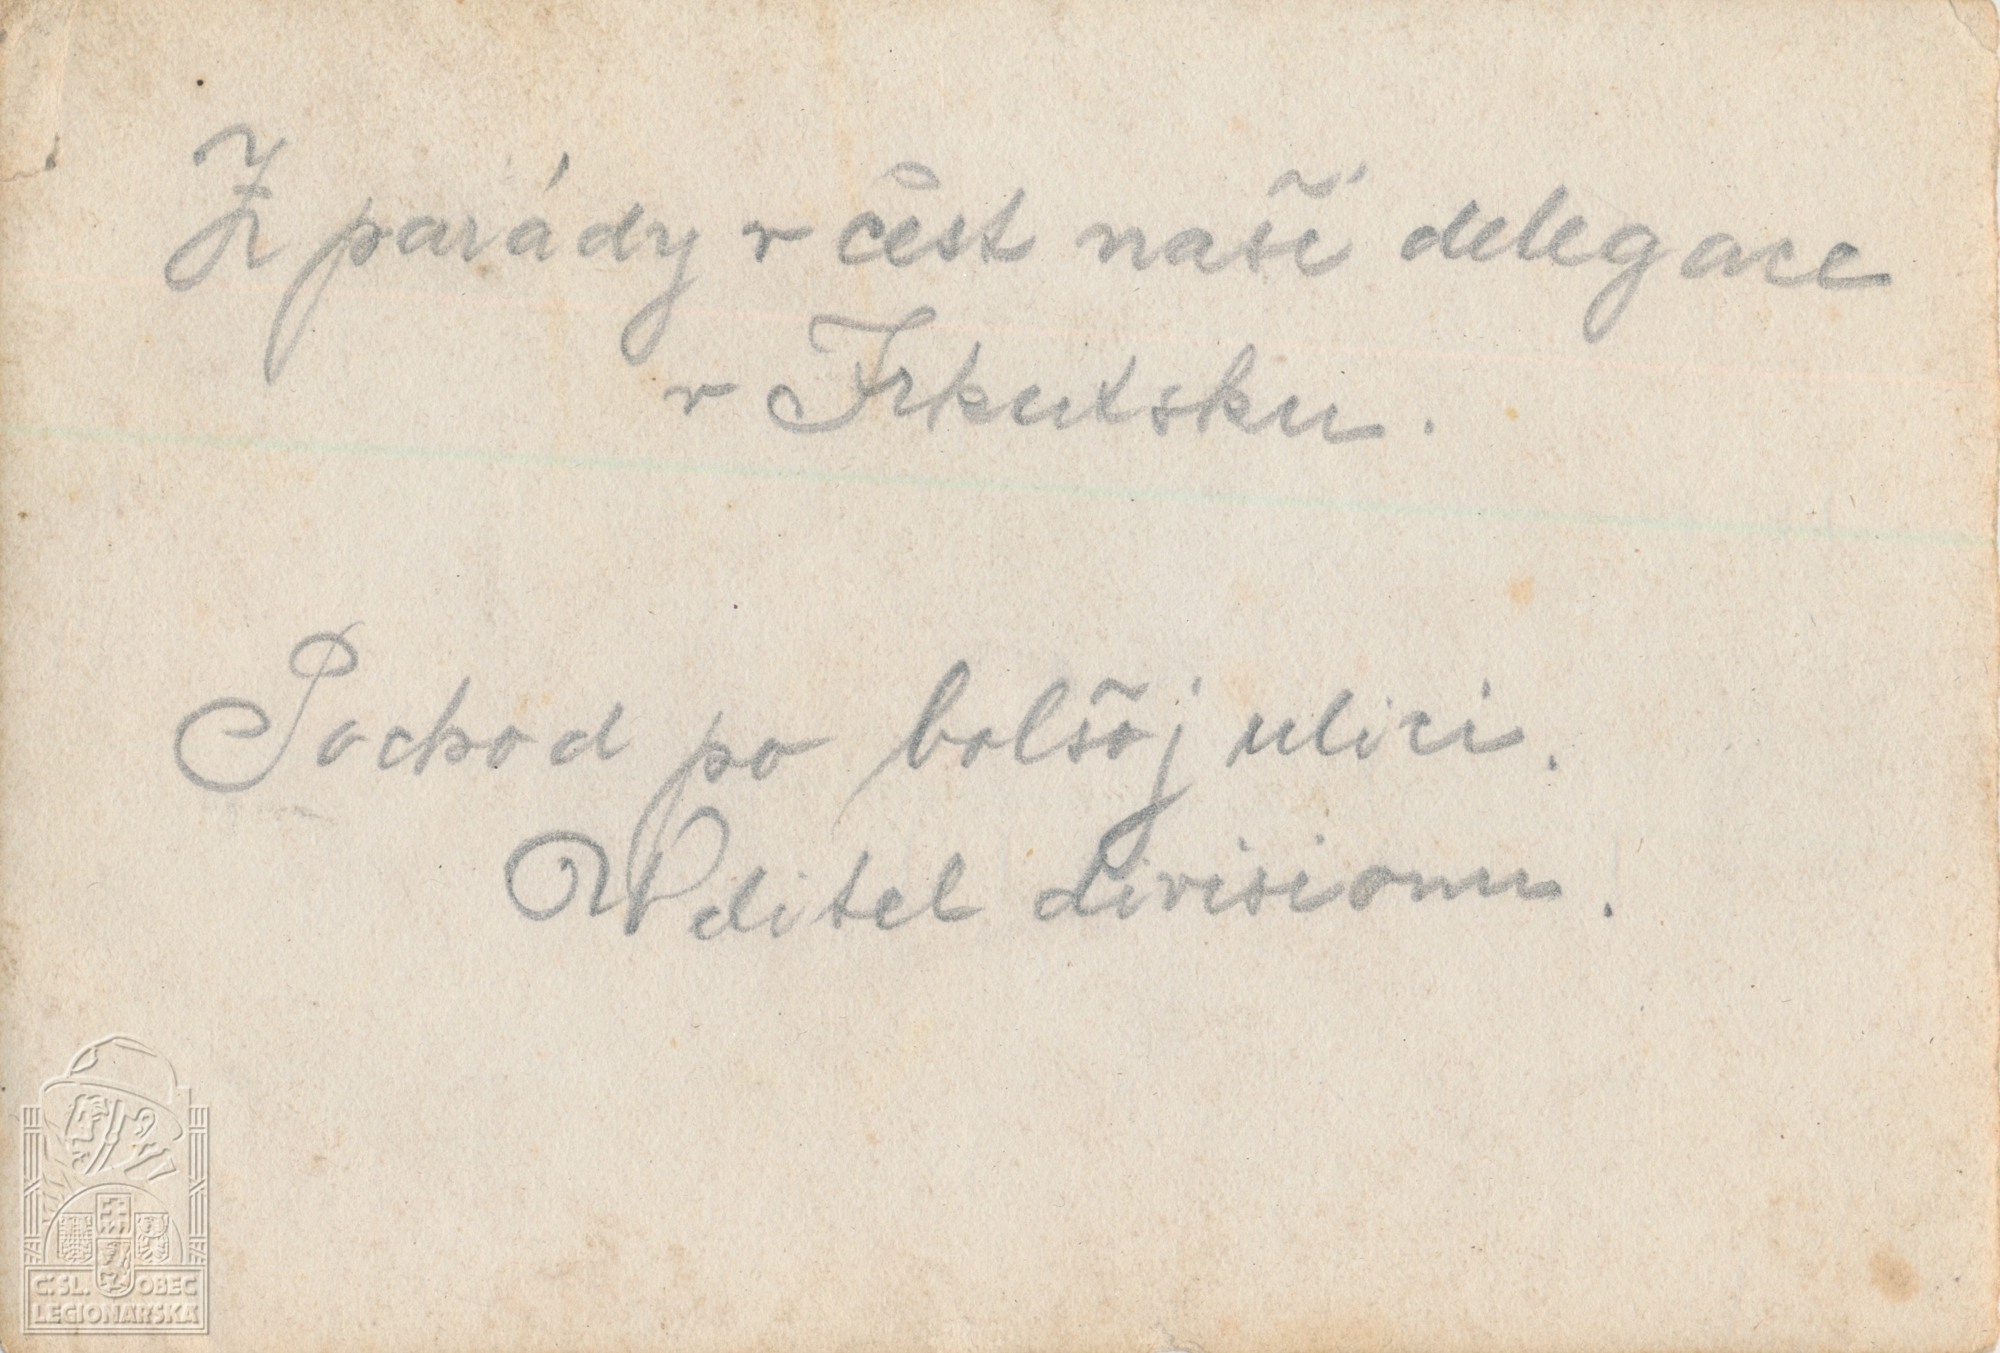 Z parády v čest naší delegace
v Irkutsku.
Pochod po bolšoj ulici.
Vditel divisionu.
Č.SL. OBEC
LEGIONÁŘSKÁ